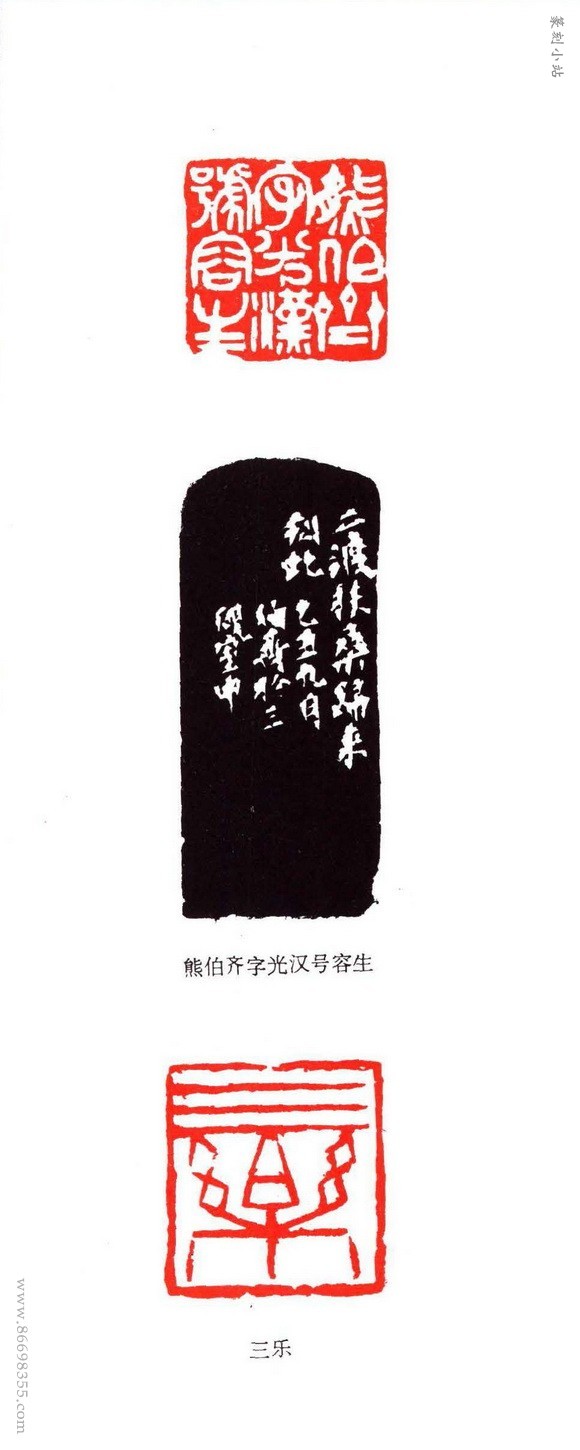 篆刻小站
熊伯齐
字光汉
號容生
二渡扶桑歸来
刻此
乙丑九月
伯齐於三
硯室中
熊伯齐字光汉号容生
三乐
www.86698355.com